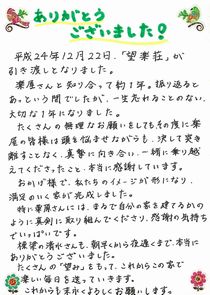 ありがとう
ございました!
平成24年12月22日、「望楽荘」が
引き渡しとなりました。
楽屋さんと知り合って約1年。振り返ると
あっという間でしたが、一生忘れることのない、
大切な1年になりました。
たくさんの無理なお願いをしてもその度に楽屋
の皆様は頭を悩ませながらも、決して突き
離すことなく、真摯に向き合い、一緒に乗り越
えてくださったこと、本当に感謝しています。
おかげ様で、私たちのイメージが形になり、
満足のいく家が完成しました。
特に栗原さんには、まるで自分の家を建てるかの
ように真剣に取り組んでくださり、感謝の気持ち
でいっぱいです。
棟梁の清水さんも、朝早くから夜遅くまで、本当に
ありがとうございました。
たくさんの「望み」をもって、これからこの家で
楽しい毎日を送っていきます。
これからも末永くよろしくお願いします。